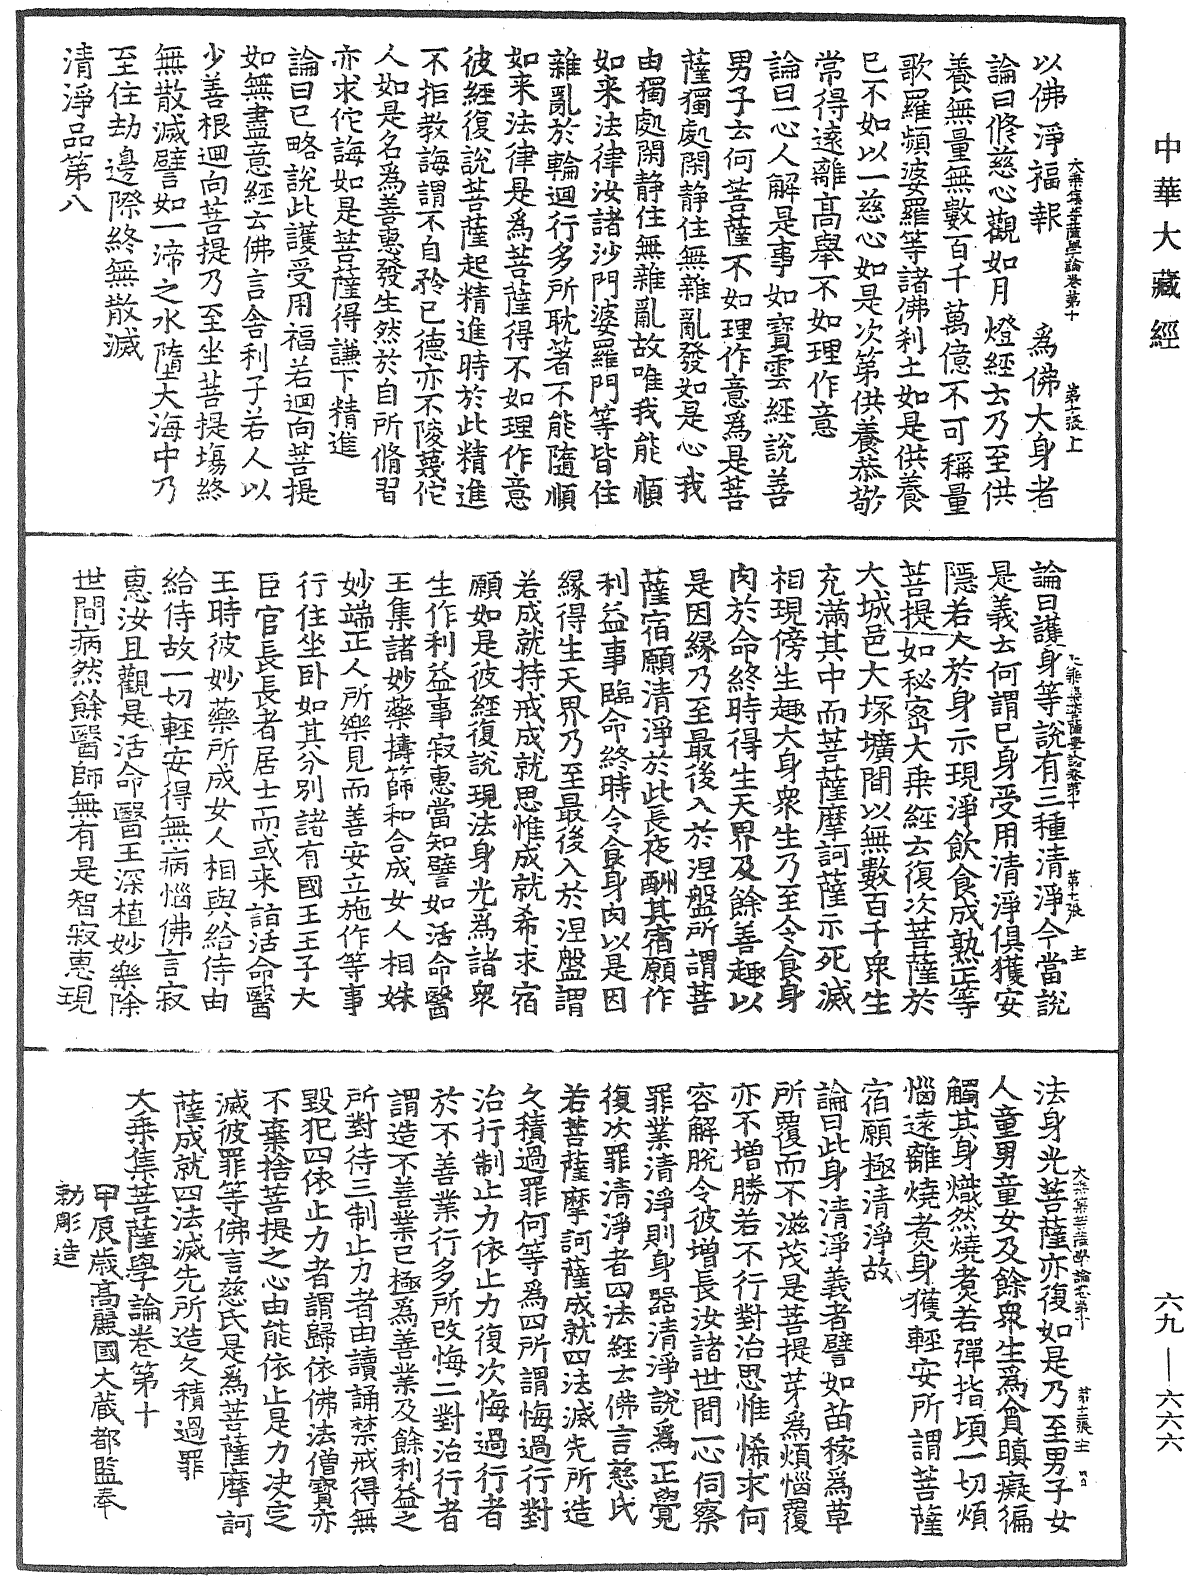 中華大藏經
六九—六六六
大乘集菩薩學論卷第十 第六張 上
以佛淨福報 為佛大身者
論曰脩慈心觀如月燈經云乃至供
養無量無數百千萬億不可稱量
歌羅頻婆羅等諸佛剎土如是供養
已不如以一慈心如是次第供養恭敬
常得遠離高舉不如理作意
論曰一心人解是事如寶雲經說善
男子云何菩薩不如理作意為是菩
薩獨處閑靜住無雜亂發如是心我
由獨處閑靜住無雜亂故唯我能順
如来法律汝諸沙門婆羅門等皆住
雜亂於輪迴行多所耽著不能隨順
如来法律是為菩薩得不如理作意
彼經復說菩薩起精進時於此精進
不拒教誨謂不自矜已德亦不陵蔑佗
人如是名為善惠發生然於自所脩習
亦求佗誨如是菩薩得謙下精進
論曰已略說此護受用福若迴向菩提
如無盡意經云佛言舍利子若人以
少善根迴向菩提乃至坐菩提場終
無散滅譬如一渧之水墮大海中乃
至住劫邊際終無散滅
清淨品第八
大乘集菩薩學論卷第十 第七張 主
論曰護身等說有三種清淨今當說
是義云何謂已身受用清淨俱獲安
隱若人於身示現淨飲食成熟正等
菩提如秘密大乘經云復次菩薩於
大城邑大塚壙間以無數百千眾生
充滿其中而菩薩摩訶薩示死滅
相現傍生趣大身眾生乃至令食身
肉於命終時得生天界及餘善趣以
是因緣乃至最後入於涅盤所謂菩
薩宿願清淨於此長夜酬其宿願作
利益事臨命終時令食身肉以是因
緣得生天界乃至最後入於涅盤謂
若成就持戒成就思惟成就希求宿
願如是彼經復說現法身光為諸眾
生作利益事寂惠當知譬如活命醫
王集諸妙藥擣篩和合成女人相姝
妙端正人所樂見而善安立施作等事
行住坐卧如其分別諸有國王王子大
臣官長長者居士而或来詣活命醫
王時彼妙藥所成女人相與給侍由
給侍故一切輕安得無病惱佛言寂
惠汝且觀是活命醫王深植妙樂除
世間病然餘醫師無有是智寂惠現
大乘集菩薩學論卷第十 主
法身光菩薩亦復如是乃至男子女
人童男童女及餘眾生為貪瞋癡徧
觸其身熾然燒煮若彈指頃一切煩
惱遠離燒煮身獲輕安所謂菩薩
宿願極清淨故
論曰此身清淨義者譬如苗稼為草
所覆而不滋茂是菩提芽為煩惱覆
亦不增勝若不行對治思惟悕求何
容解脫令彼增長汝諸世間一心伺察
罪業清淨則身器清淨說為正覺
復次罪清淨者四法經云佛言慈氏
若菩薩摩訶薩成就四法滅先所造
久積過罪何等為四所謂悔過行對
治行制止力依止力復次悔過行者
於不善業行多所改悔二對治行者
謂造不善業已極為善業及餘利益之
所對待三制止力者由讀誦禁戒得無
毀犯四依止力者謂歸依佛法僧寶亦
不棄捨菩提之心由能依止是力決定
滅彼罪等佛言慈氏是為菩薩摩訶
薩成就四法滅先所造久積過罪
大乘集菩薩學論卷第十
甲辰歲高麗國大藏都監奉
勅彫造